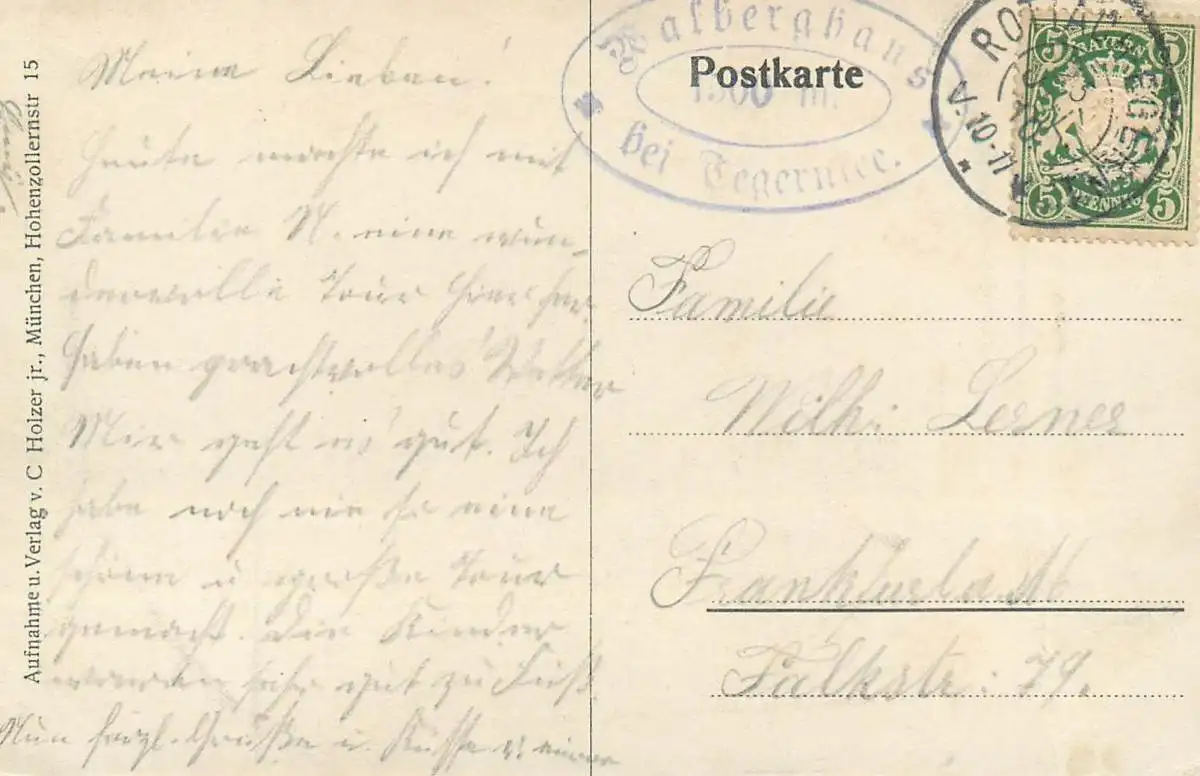 Aufnahme u. Verlag v. C Holzer jr., München, Hohenzollernstr 15
Meine Lieben!
Heute machte ich mit
Familie N. eine wun-
dervolle Tour hierher
haben prachtvolles Wetter
Mir geht es gut. Ich
habe noch nie so eine
schöne u große Tour
gemacht. Die Kinder
waren sehr gut zu Fuß.
Nun herzl. Grüße u. Küsse v. eurer
Wallberghaus
1500 m.
bei Tegernsee.
Postkarte
V. 10-11
BAYERN
5 5
5 PFENNIG 5
Familie
Wilh: Lerner
Frankfurt a M
Falkstr: 79.